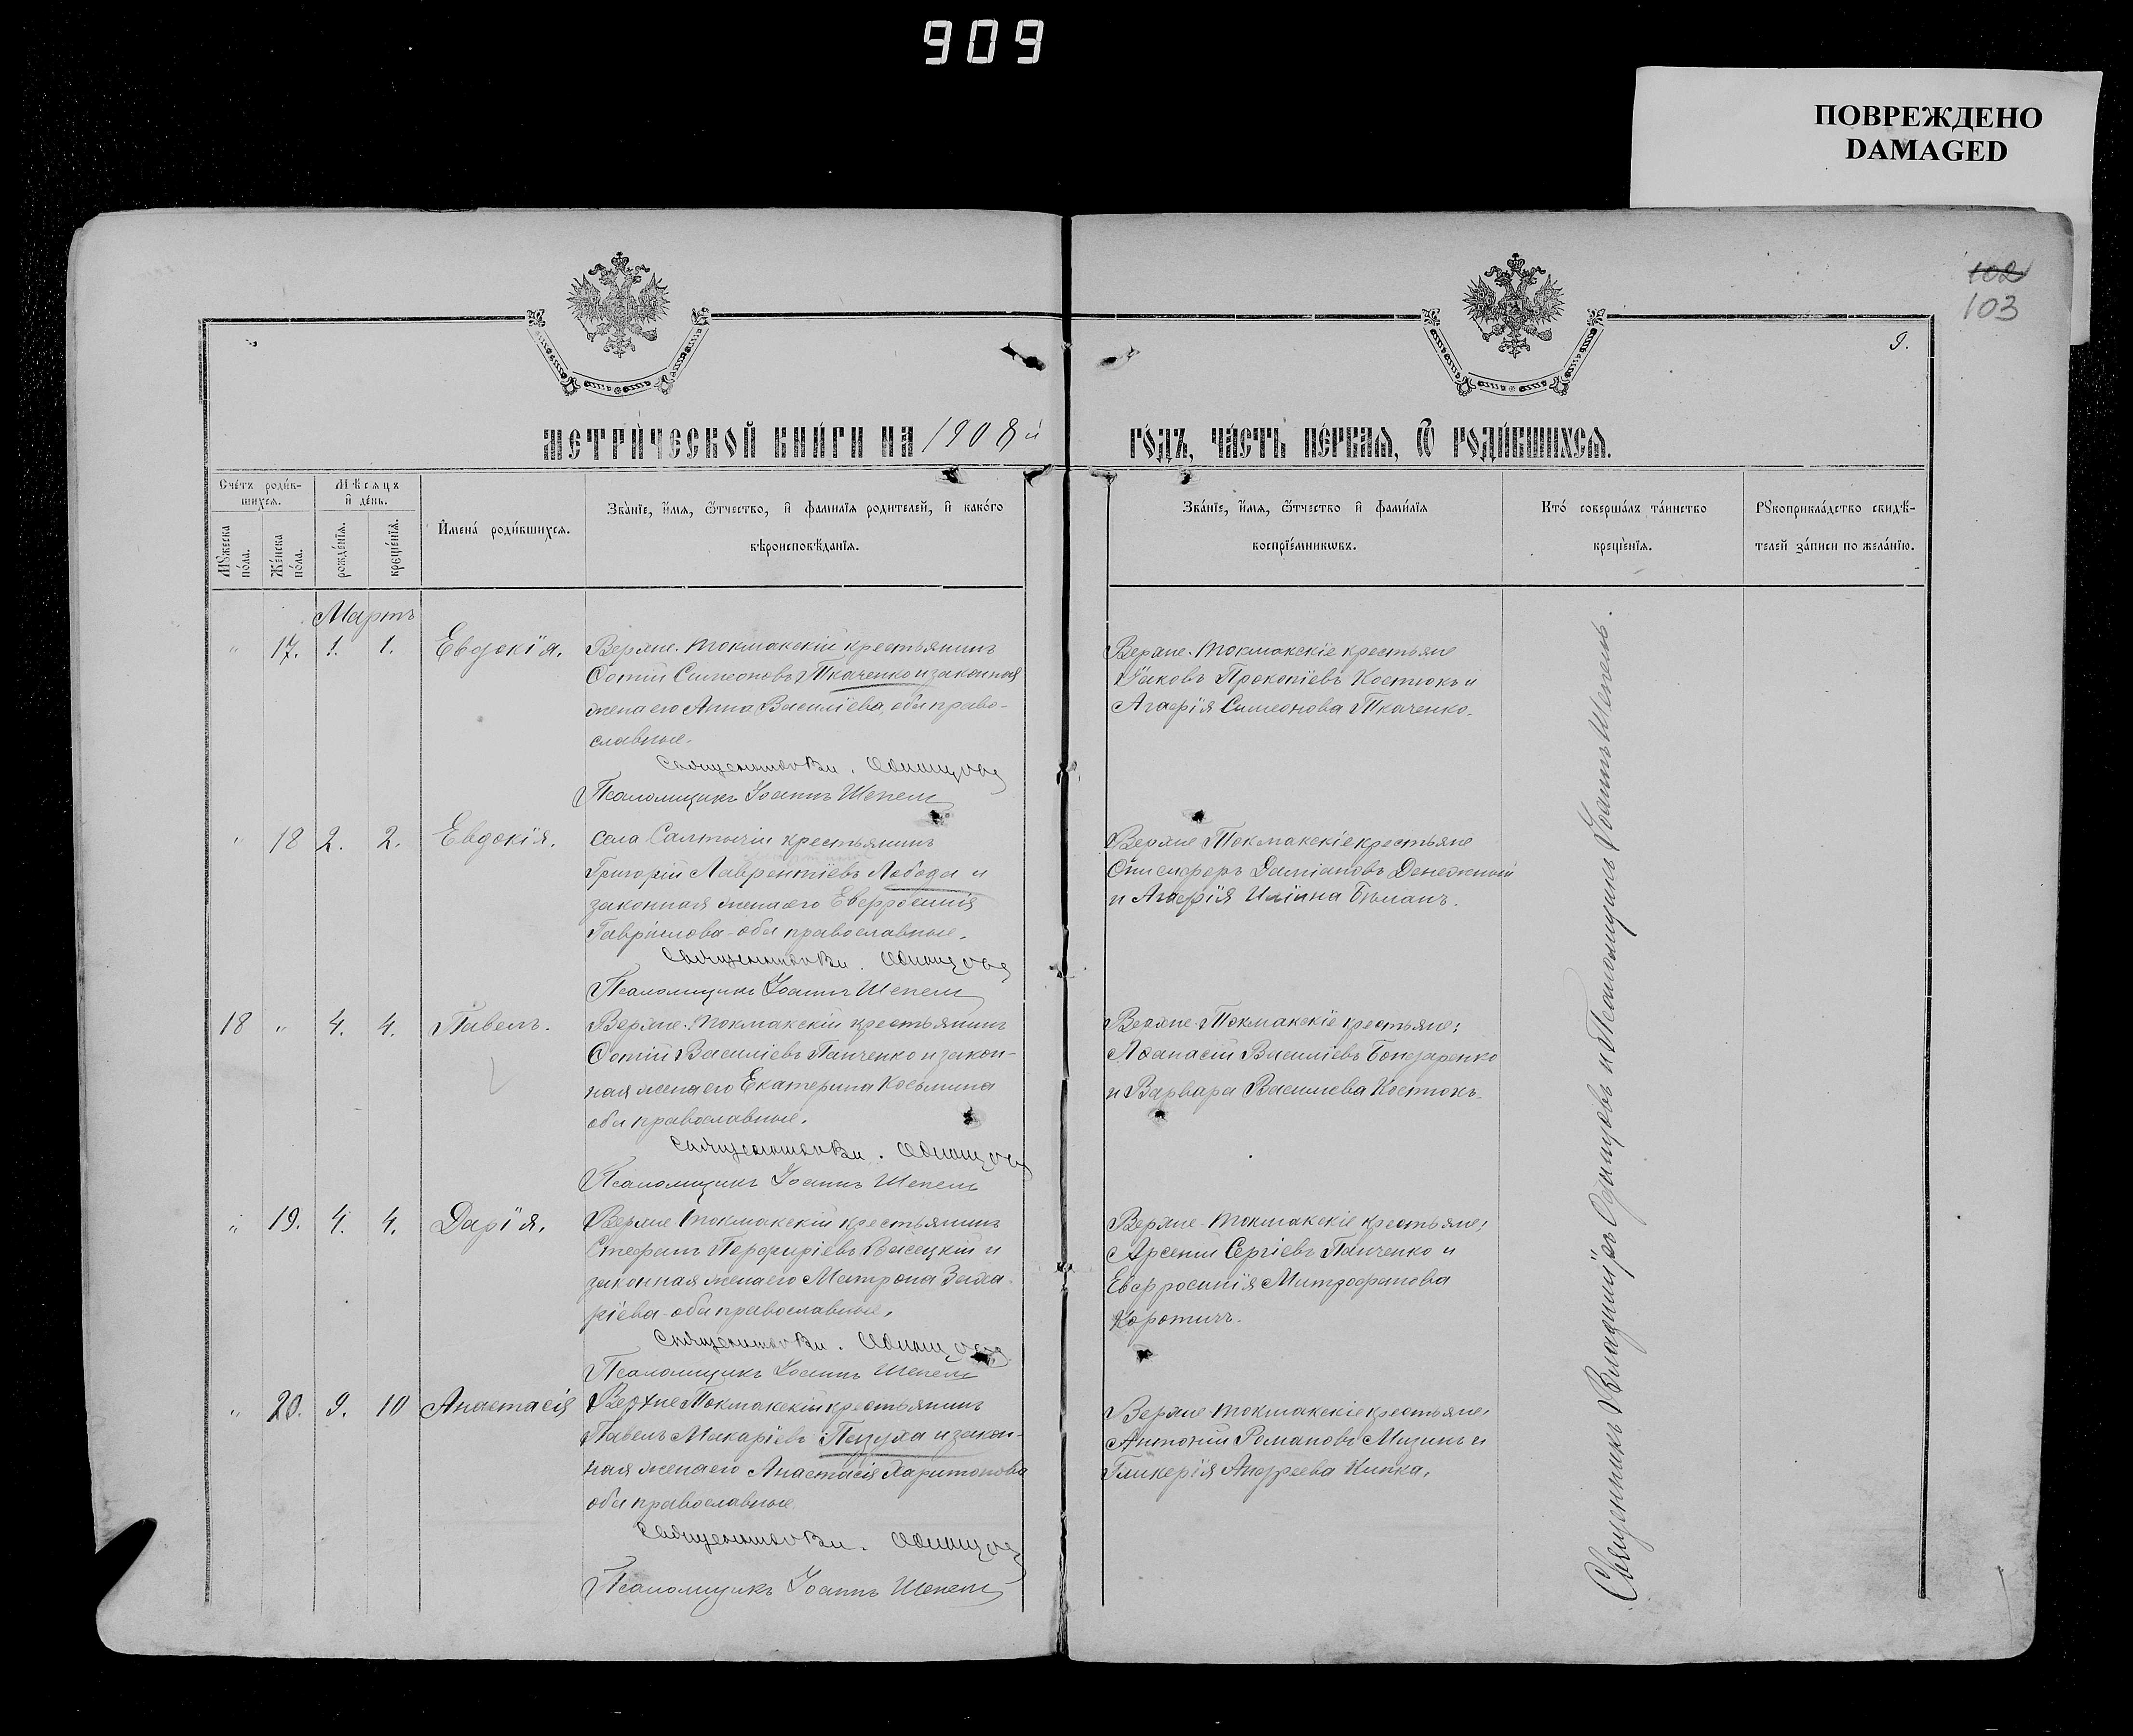 909
ПОВРЕЖДЕНО
DAMAGED
102
103
9.
МЕТРИ́ЧЕСКОЙ КНИ́ГИ НА 1908 й
ГО́ДЪ, ЧА́СТЬ ПЕ́РВАЯ, Ѿ РОДИ́ВШИХСЯ.
Сче́тъ роди́в-
шихся.
Му́жеска по́ла.
Же́нска по́ла.
Мѣ́сяцъ и де́нь.
рожде́нїя.
креще́нїя.
Имена́ роди́вшихся.
Зва́нїе, и́мя, ѻ́тчество, и фами́лїя родителей, и како́го
вѣроисповѣ́данїя.
Зва́нїе, и́мя, ѻ́тчество и фами́лїя
воспрїе́мниковъ.
Кто́ соверша́лъ та́инство
креще́нїя.
Рукоприкла́дство свидѣ́-
телей за́писи по жела́нїю.
Мартъ
" 17. 1. 1. Евдокія.
Верхне-Токмакскій крестьянинъ
Фотій Симеоновъ Ткаченко и законная
жена его Анна Василіева, оба право-
славные.
Священникъ Вл. Одинцовъ
Псаломщикъ Іоаннъ Шепель
Верхне-Токмакскіе крестьяне
Іаковъ Прокопіевъ Костюкъ и
Агафія Симеонова Ткаченко.
" 18 2. 2. Евдокія.
села Салтычіи крестьянинъ
Григорій Лаврентіевъ Лобода и
законная жена его Евфросинія
Гаврилова - оба православные.
Священникъ Вл. Одинцовъ
Псаломщикъ Іоаннъ Шепель
Верхне-Токмакскіе крестьяне
Онисифоръ Даміановъ Денежный
и Агафія Иліина Бѣланъ.
18 " 4. 4. Павелъ.
Верхне-Токмакскій крестьянинъ
Фотій Василіевъ Панченко и закон-
ная жена его Екатерина Косьмина
оба православные.
Священникъ Вл. Одинцовъ
Псаломщикъ Іоаннъ Шепель
Верхне-Токмакскіе крестьяне:
Афанасій Василіевъ Бондаренко
и Варвара Василіева Костюкъ.
" 19. 4. 4. Дарія.
Верхне-Токмакскій крестьянинъ
Стефанъ Порфиріевъ Высецкій и
законная жена его Матрона Заха-
ріева - оба православные.
Священникъ Вл. Одинцовъ
Псаломщикъ Іоаннъ Шепель
Верхне-Токмакскіе крестьяне:
Арсеній Сергіевъ Панченко и
Евфросинія Митрофанова
Коротичъ.
" 20. 9. 10 Анастасія
Верхне-Токмакскій крестьянинъ
Павелъ Макаріевъ Пецуха и закон-
ная жена его Анастасія Харитонова
оба православные
Священникъ Вл. Одинцовъ
Псаломщикъ Іоаннъ Шепель
Верхне-Токмакскіе крестьяне,
Антоній Романовъ Мизинъ и
Гликерія Андреева Кипка.
Священникъ Владиміръ Одинцовъ и Псаломщикъ Іоаннъ Шепель.